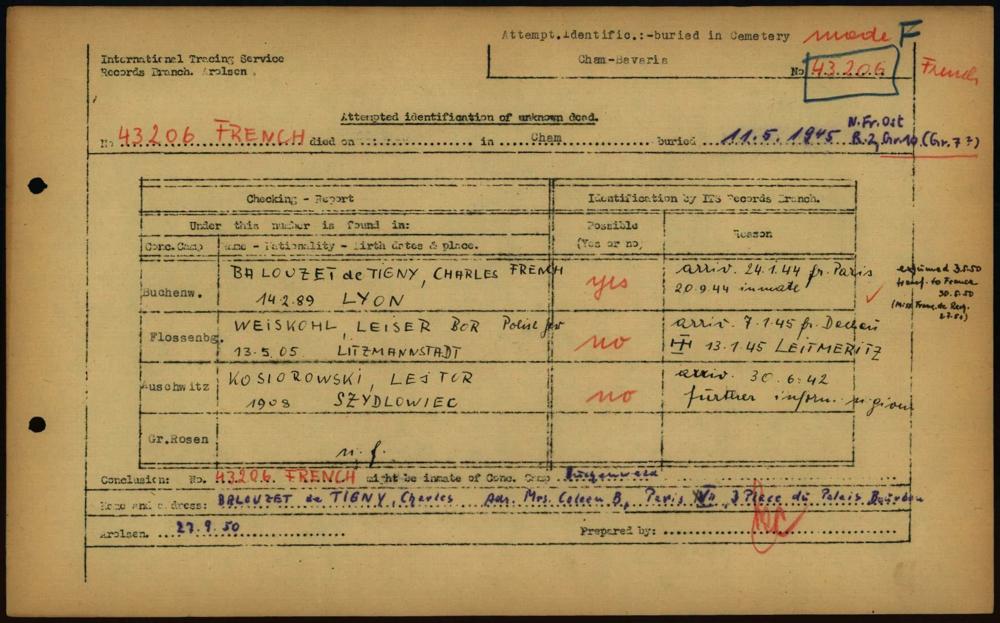 Attempt.Identific.:-buried in Cemetery made F
International Tracing Service
Records Branch. Arolsen.
Cham-Bavaria
No 43206 French
Attempted identification of unknown dead.
No 43206 FRENCH died on in Cham buried 11.5.1945 N.Fr.Ost R.2, Gr.10 (Gr.7?)
Checking - Report Identification by ITS Records Branch.
Under this number is found in: Possible (Yes or no) Reason
Conc.Camp Name - Nationality - Birth dates & place.
BALOUZET de TIGNY, CHARLES FRENCH arriv. 24.1.44 fr. Paris
Buchenw. 14.2.89 LYON yes 20.9.44 inmate
exhumed 3.5.50
transf. to France
30.5.50
WEISKOHL, LEISER BOR Polish Jew arriv. 7.1.45 fr. Dachau
Flossenbg. 13.5.05 LITZMANNSTADT no 13.1.45 LEITMERITZ
Auschwitz KOSIOROWSKI, LEJTOR arriv. 30.6.42
1908 SZYDLOWIEC no further inform. n. given
Gr.Rosen
n. f.
Conclusion: No. 43206 FRENCH might be inmate of Conc. Camp Buchenwald
Name and address: BALOUZET de TIGNY, Charles Adr. Mrs. Coleen B., Paris VII, 3 Place du Palais Bourbon
Arolsen. 27.9.50 Prepared by: